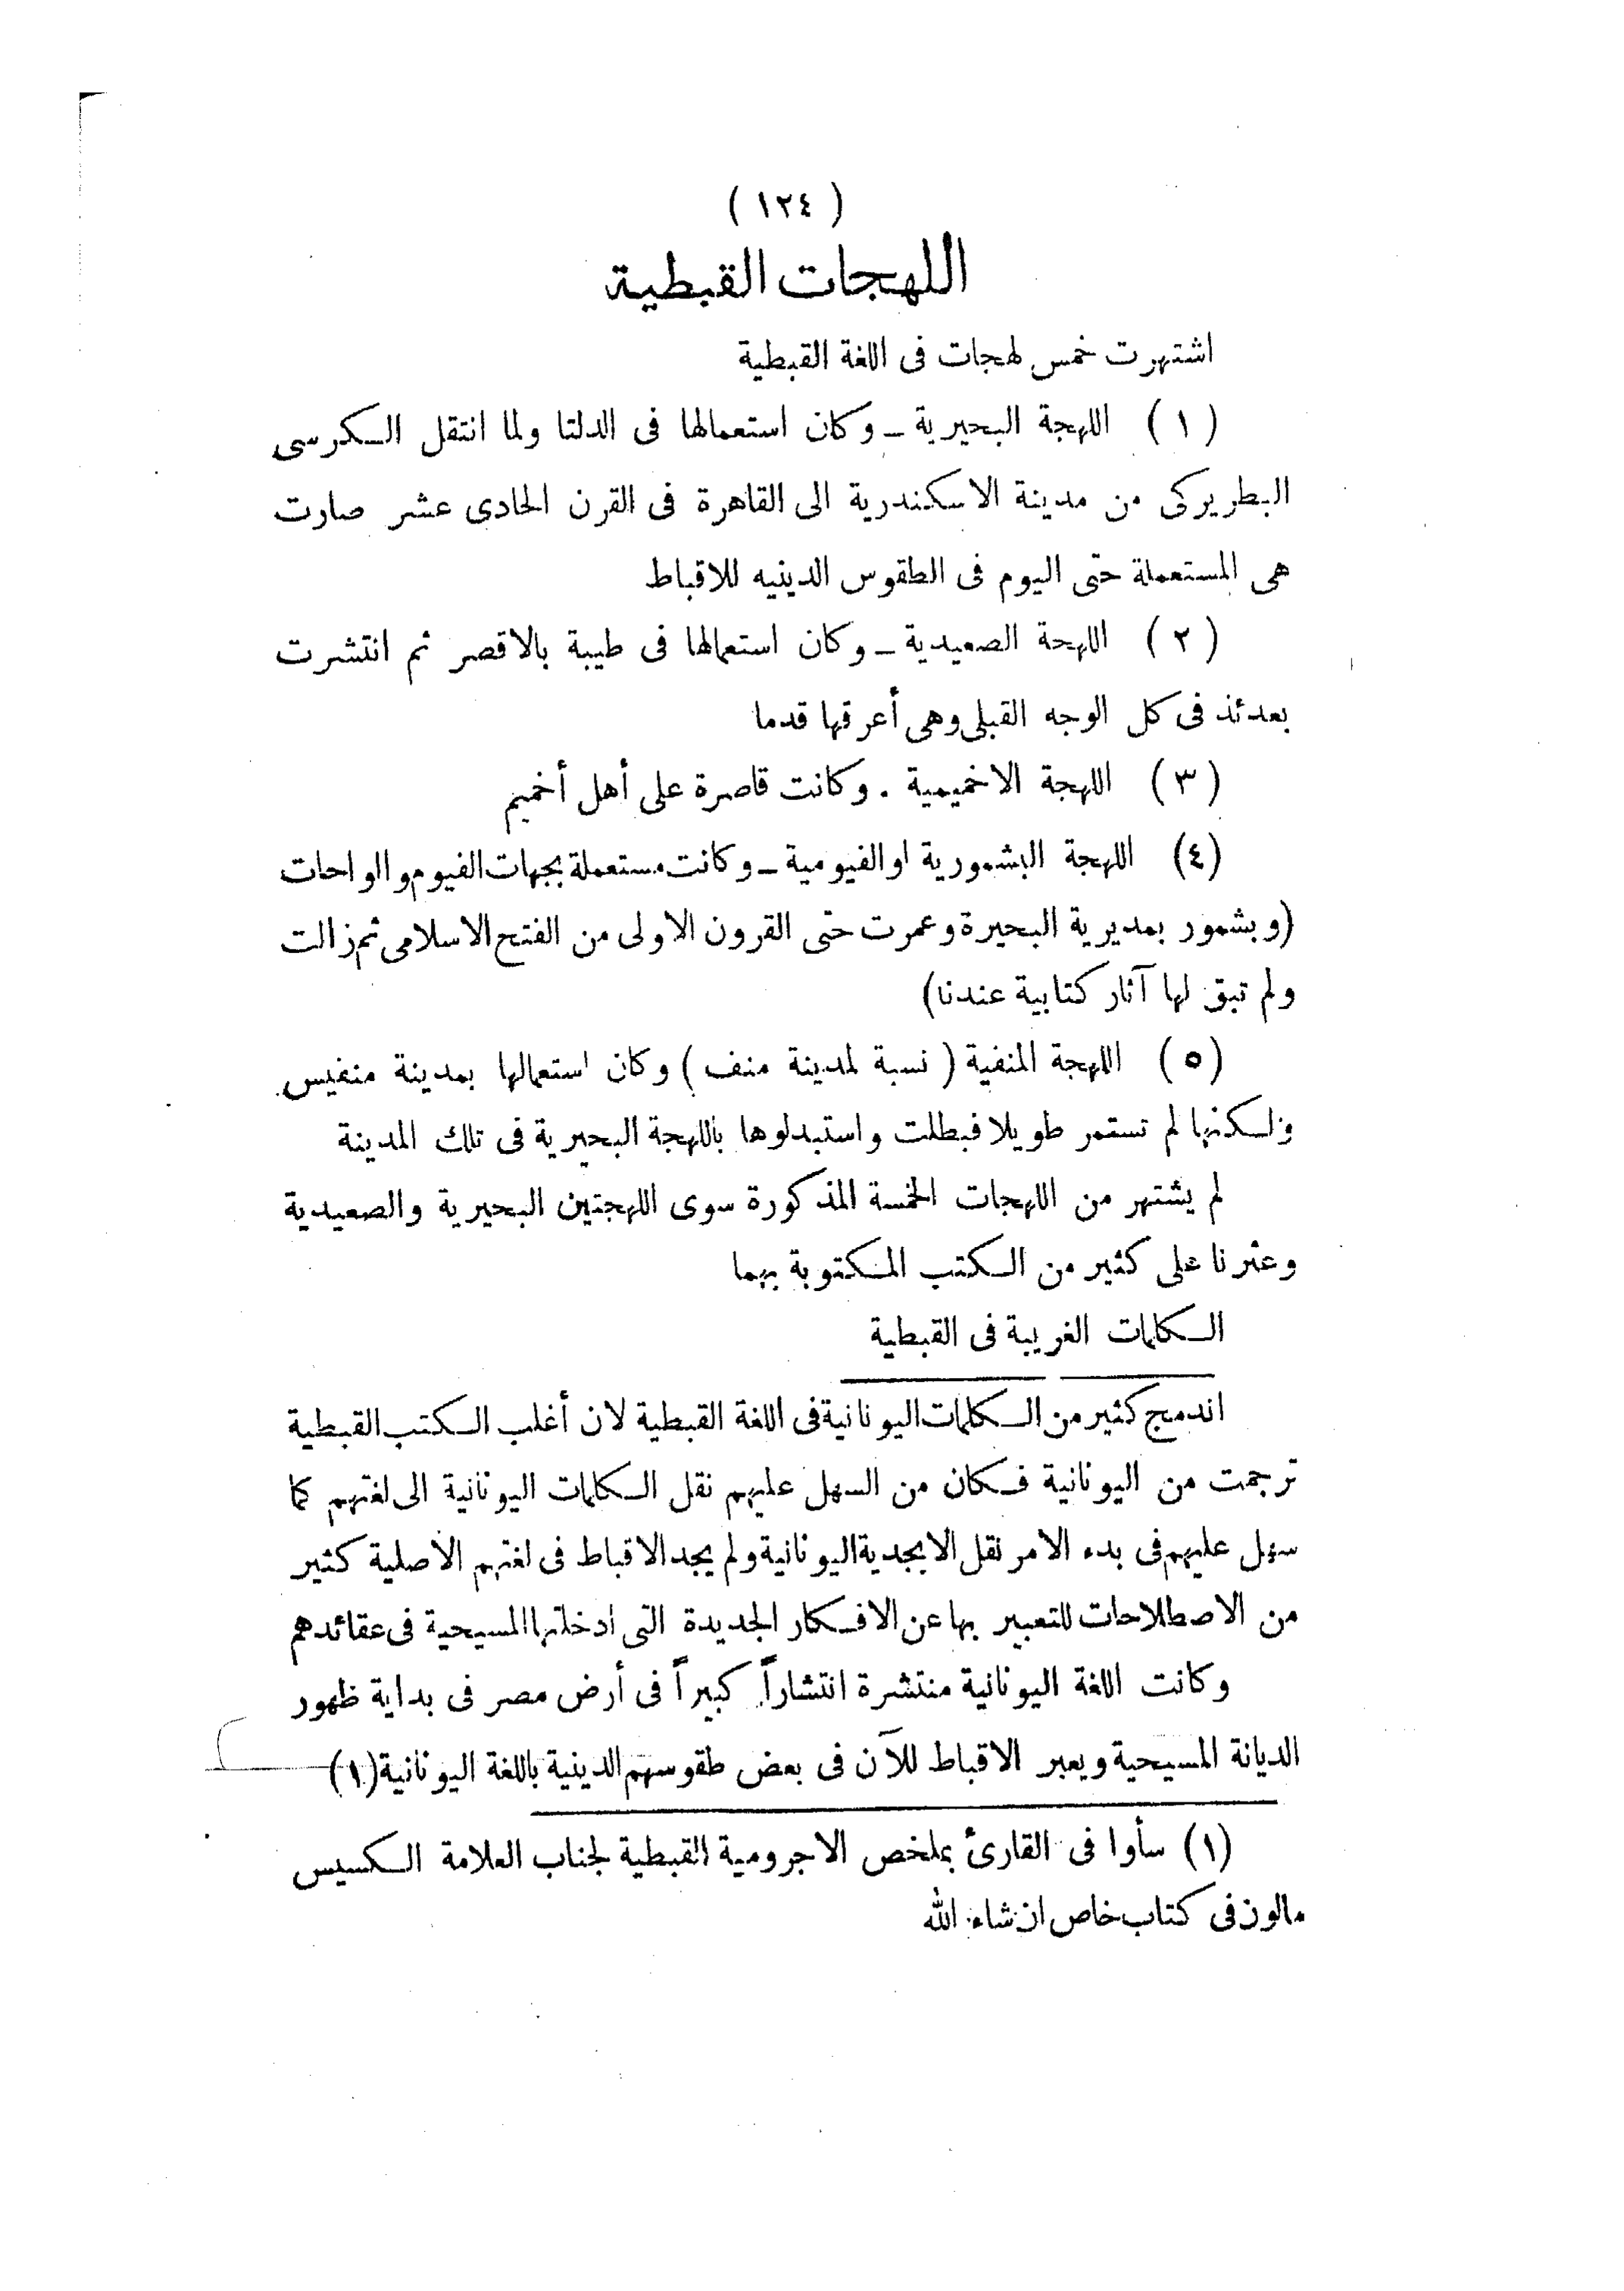 ( ١٢٤ )
اللهجات القبطية
اشتهرت خمس لهجات فى اللغة القبطية
( ١ ) اللهجة البحيرية ــ وكان استعمالها فى الدلتا ولما انتقل الكرسى
البطريركى من مدينة الاسكندرية الى القاهرة فى القرن الحادى عشر صارت
هى المستعملة حتى اليوم فى الطقوس الدينيه للاقباط
( ٢ ) اللهجة الصعيدية ــ وكان استعمالها فى طيبة بالاقصر ثم انتشرت
بعدئذ فى كل الوجه القبلى وهى أعرقها قدما
( ٣ ) اللهجة الاخميمية . وكانت قاصرة على أهل أخميم
(٤) اللهجة البشمورية او الفيومية ــ وكانت مستعملة بجهات الفيوم والواحات
(وبشمور بمديرية البحيرة وعمرت حتى القرون الاولى من الفتح الاسلامى ثم زالت
ولم تبق لها آثار كتابية عندنا)
( ٥ ) اللهجة المنفية ( نسبة لمدينة منف ) وكان استعمالها بمدينة منفيس
ولكنها لم تستمر طويلا فبطلت واستبدلوها باللهجة البحيرية فى تلك المدينة
لم يشتهر من اللهجات الخمسة المذكورة سوى اللهجتين البحيرية والصعيدية
وعثرنا على كثير من الكتب المكتوبة بهما
الكلمات الغريبة فى القبطية
اندمج كثير من الكلمات اليونانية فى اللغة القبطية لان أغلب الكتب القبطية
ترجمت من اليونانية فكان من السهل عليهم نقل الكلمات اليونانية الى لغتهم كما
سهل عليهم فى بدء الامر نقل الابجدية اليونانية ولم يجد الاقباط فى لغتهم الأصلية كثير
من الاصطلاحات للتعبير بها عن الافكار الجديدة التى ادخلتها المسيحية فى عقائدهم
وكانت اللغة اليونانية منتشرة انتشاراً كبيراً فى أرض مصر فى بداية ظهور
الديانة المسيحية ويعبر الاقباط للآن فى بعض طقوسهم الدينية باللغة اليونانية (١)
(١) سأوا فى القارئ بملخص الاجرومية القبطية لجناب العلامة الكسيس
مالون فى كتاب خاص ان شاء الله